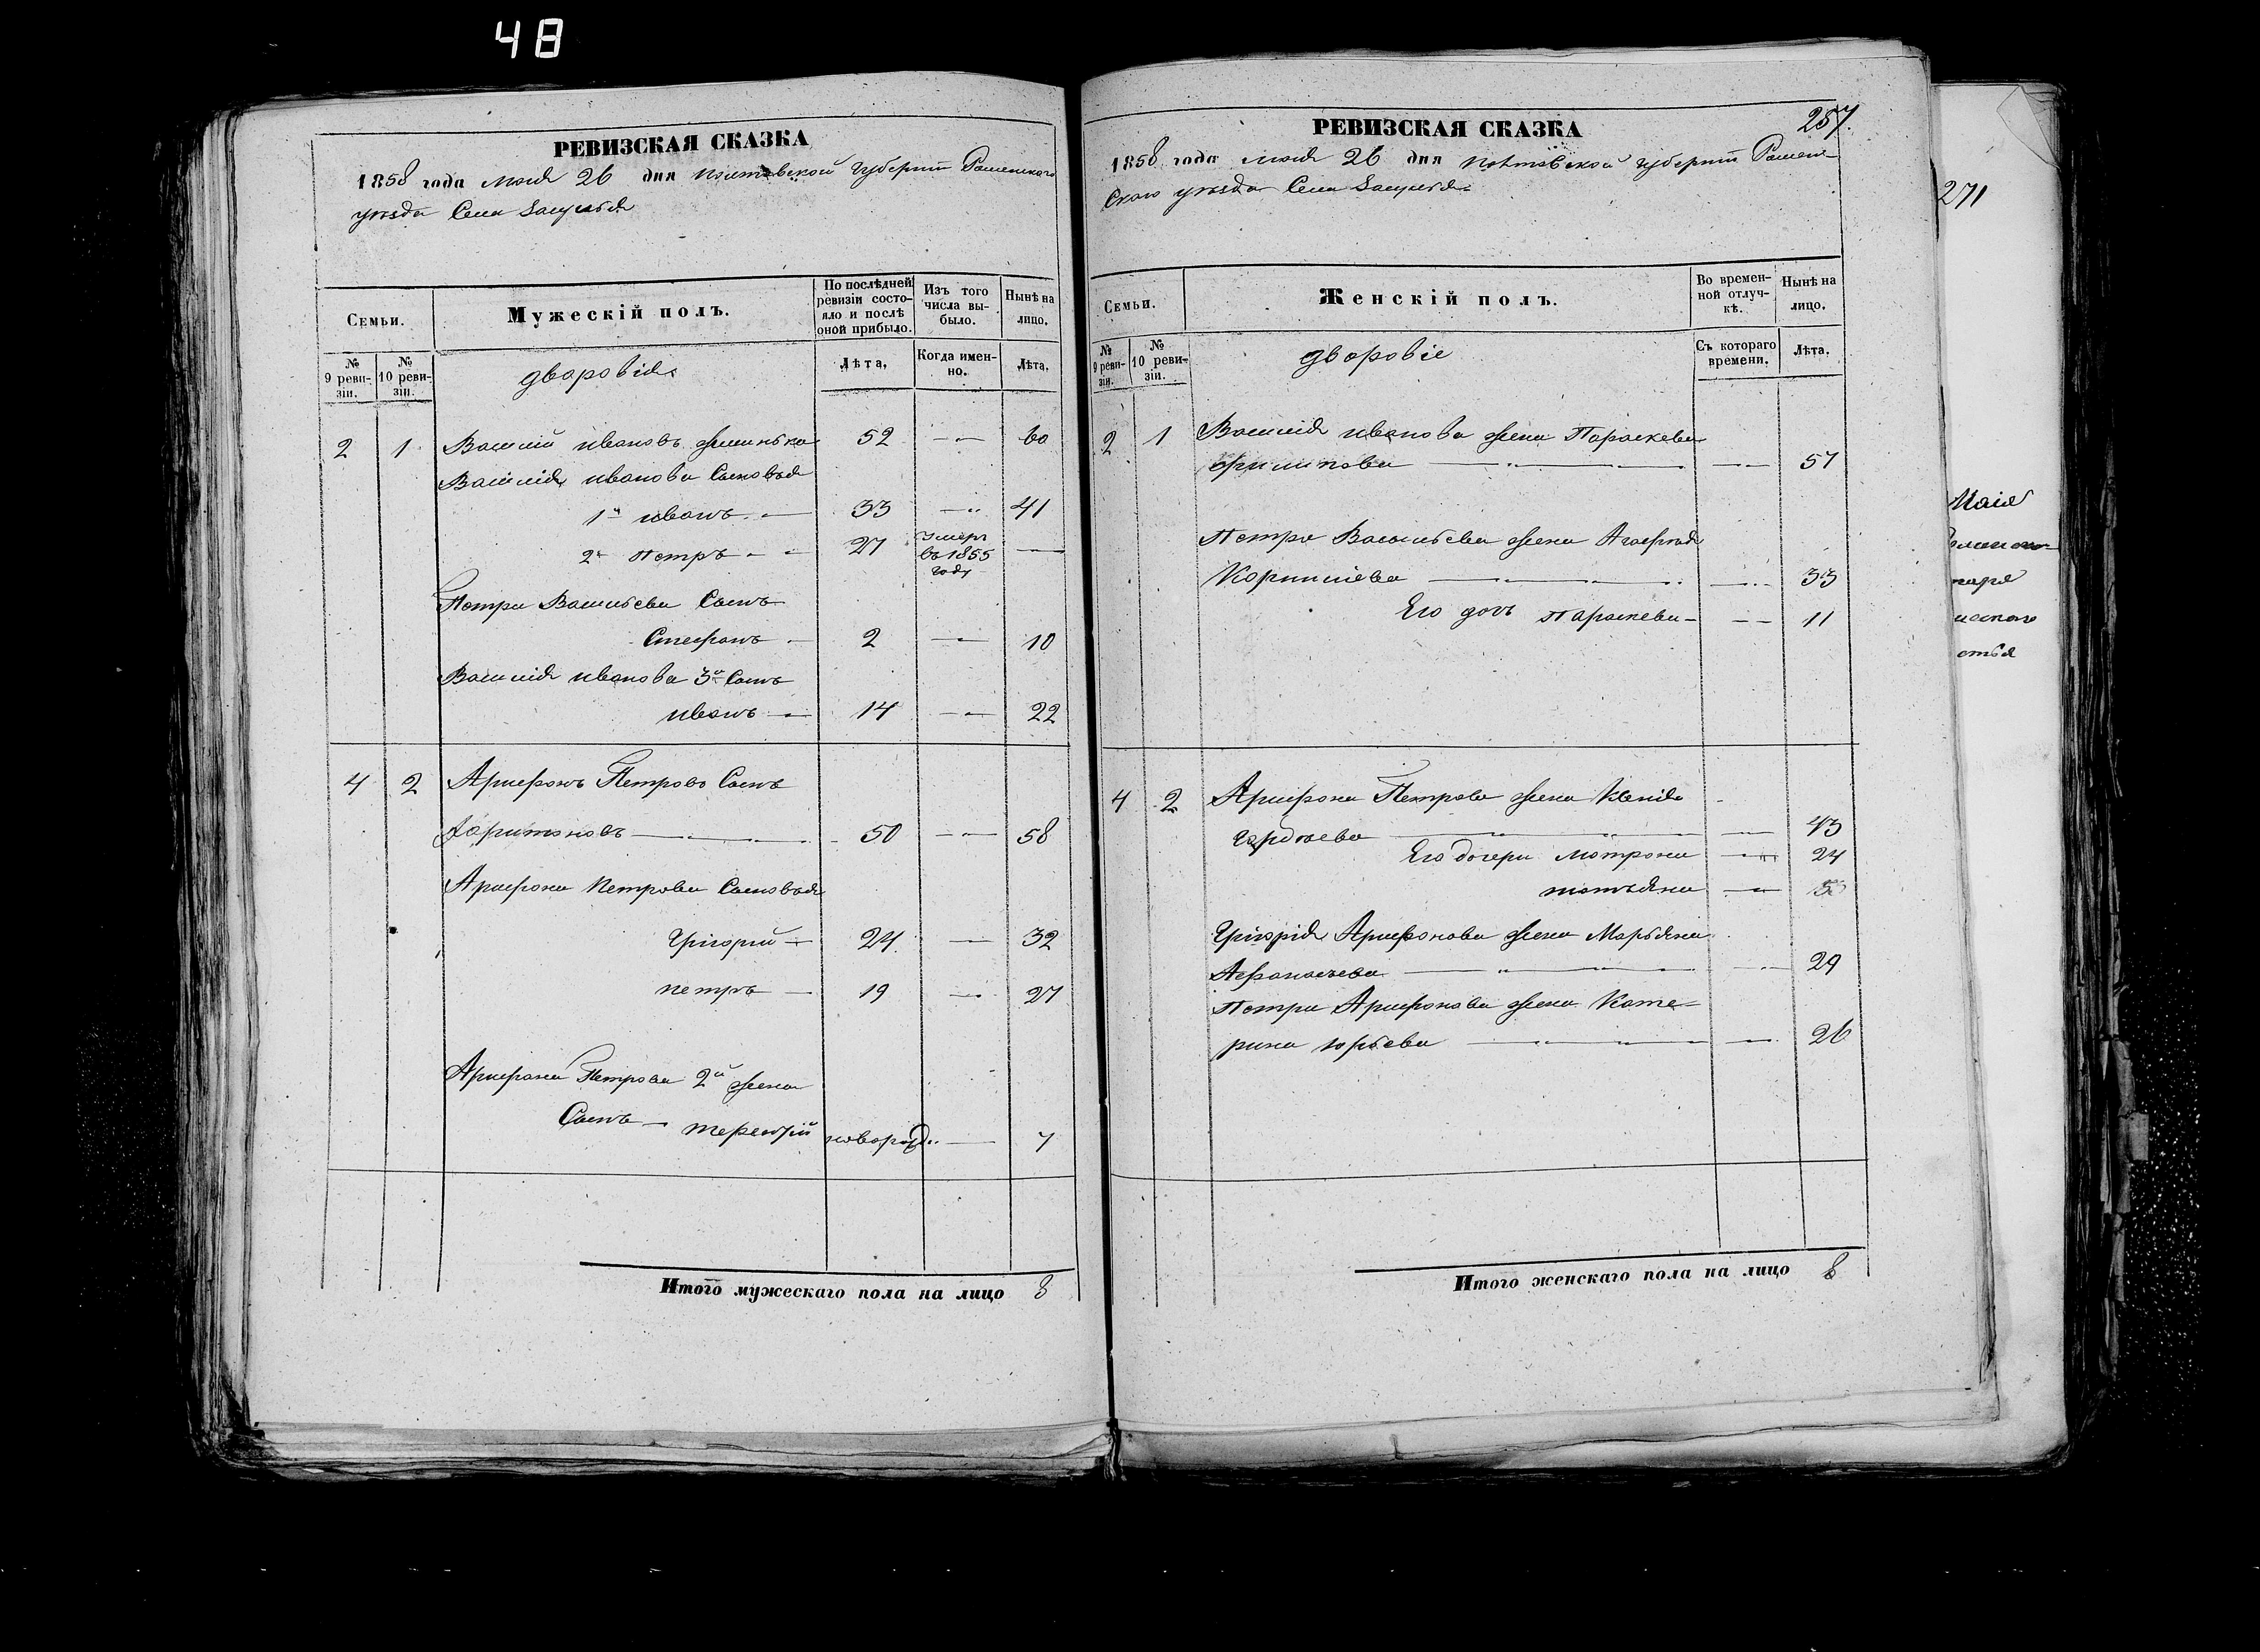 48
РЕВИЗСКАЯ СКАЗКА
1858 года Маія 26 дня Полтавской Губерніи Роменского
уезда Села Засулья
Семьи.
Мужескій полъ.
По послѣдней ревизіи состояло и послѣ оной прибыло.
Изъ того числа выбыло.
Нынѣ на лицо.
№ 9 ревизіи.
№ 10 ревизіи.
дворовія
Лѣта.
Когда именно.
Лѣта.
2 1 Василій ивановъ 52 60
Василія иванова Сыновья
1й иванъ 33 41
2й Петръ 27 Умеръ въ 1855 году
Петра Васильева Сынъ
Стефанъ 2 10
Василія иванова 3й Сынъ
иванъ 14 22
4 2 Арифонъ Петровъ Сынъ
Харитоновъ 50 58
Арифона Петрова Сыновья
Григорій 24 32
петръ 19 27
Арифона Петрова 2й жена
Сынъ терентій новорожд. 7
Итого мужескаго пола на лицо 8
РЕВИЗСКАЯ СКАЗКА
257.
1858 года Маія 26 дня Полтавской Губерніи Ромен-
ского уезда Села Засулья
Семьи.
Женскій полъ.
Во временной отлучкѣ.
Нынѣ на лицо.
№ 9 ревизіи.
№ 10 ревизіи.
дворовіе
Съ котораго времени.
Лѣта.
2 1 Василія иванова жена Параскева
Филипова 57
Петра Васильева жена Агафія
Корнилиева 33
Его дочь Параскева 11
4 2 Арифона Петрова жена Ксенія
43
Его дочери Мотрона 24
татьяна 5
Григорія Арифонова жена Марьяна
Афанасьева 29
Петра Арифонова жена Кате-
рина юрьева 26
Итого женскаго пола на лицо 8
271
Маія